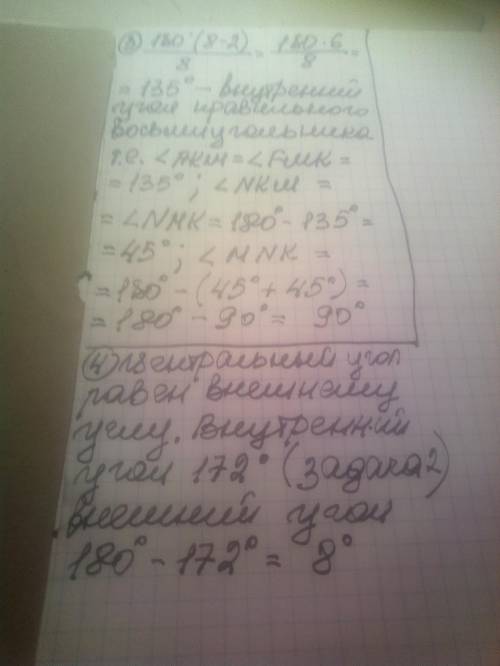 ③ 180°·(8-2)/8 = 180·6/8 =
= 135° - внутренний
угол правильного
восьмиугольника
т.е. ∠AKM = ∠FMK =
= 135°; ∠NKM =
= ∠NMK = 180° - 135° =
= 45°; ∠MNK =
= 180° - (45° + 45°) =
= 180° - 90° = 90°
④ Центральный угол
равен внешнему
углу. Внутренний
угол 172° (задача 2)
внешний угол
180° - 172° = 8°